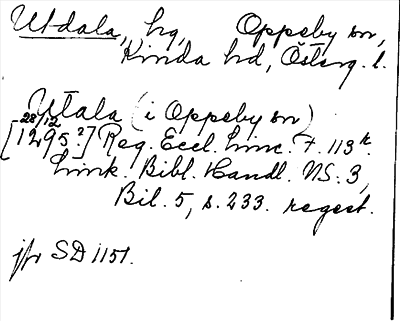 Utdala, hg, Oppeby sn,
Kinda hd, Österg. l.
Utala (i Oppeby sn)
28/12
[1295?] Reg. Eccl. Linc. F. 113r.
Link. Bibl. Handl. NS. 3,
Bil. 5, s. 233. regest.
jfr SD 1151.